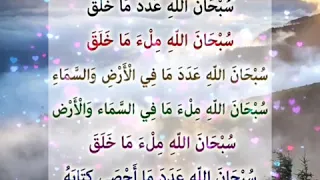 سُبْحَانَ اللّهِ عَدَدَ مَا خَلَقَ
سُبْحَانَ اللّهِ مِلْءَ مَا خَلَقَ
سُبْحَانَ اللّهِ عَدَدَ مَا فِي الْأَرْضِ وَالسَّمَاءِ
سُبْحَانَ اللّهِ مِلْءَ مَا فِي السَّمَاء وَالْأَرْضِ
سُبْحَانَ اللّهِ مِلْءَ مَا خَلَقَ
سُبْحَانَ اللّهِ عَدَدَ مَا أَحْصَى كِتَابُهُ